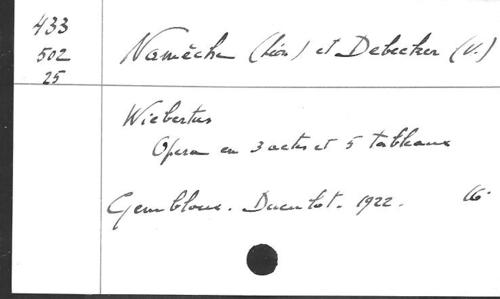 433
502
25
Namèche (Léon) et Debecker (V.)
Wiebertus
Opera en 3 actes et 5 tableaux
Gembloux. Duculot. 1922.